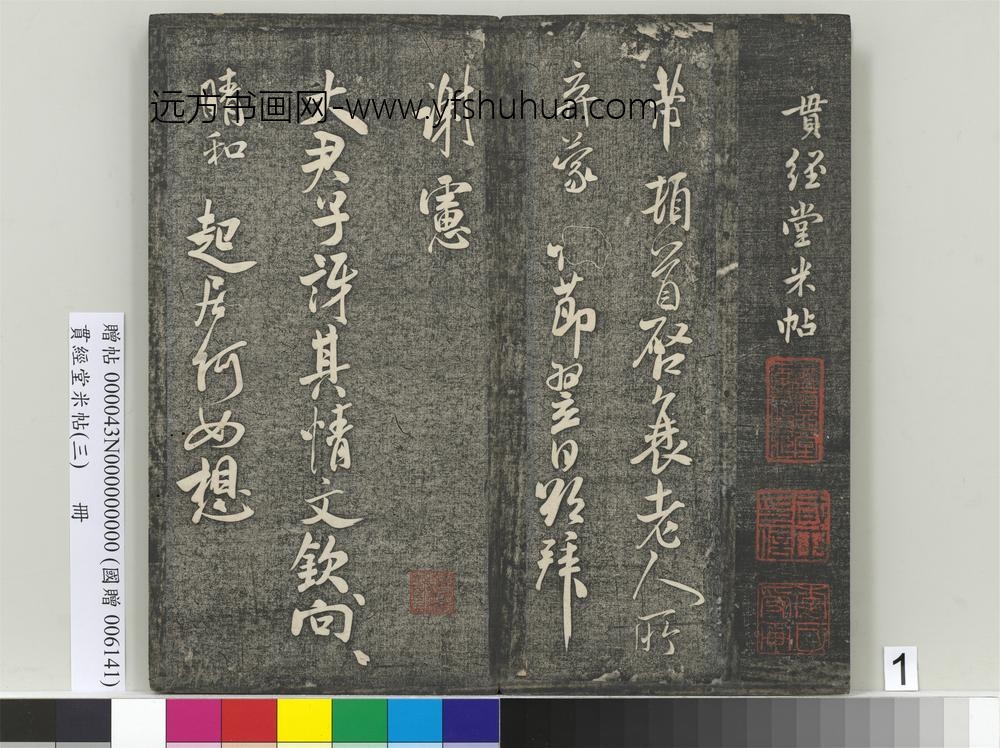 貫經堂米帖
芾頓首啓衰老人所
幸蒙
節翌日欲拜
謝憲
大君子訝其情文欽向
晴和起居何如想
远方书画网-www.yfshuhua.com
贈帖 000043N000000000 (國贈 006141)
貫經堂米帖(三) 冊
1